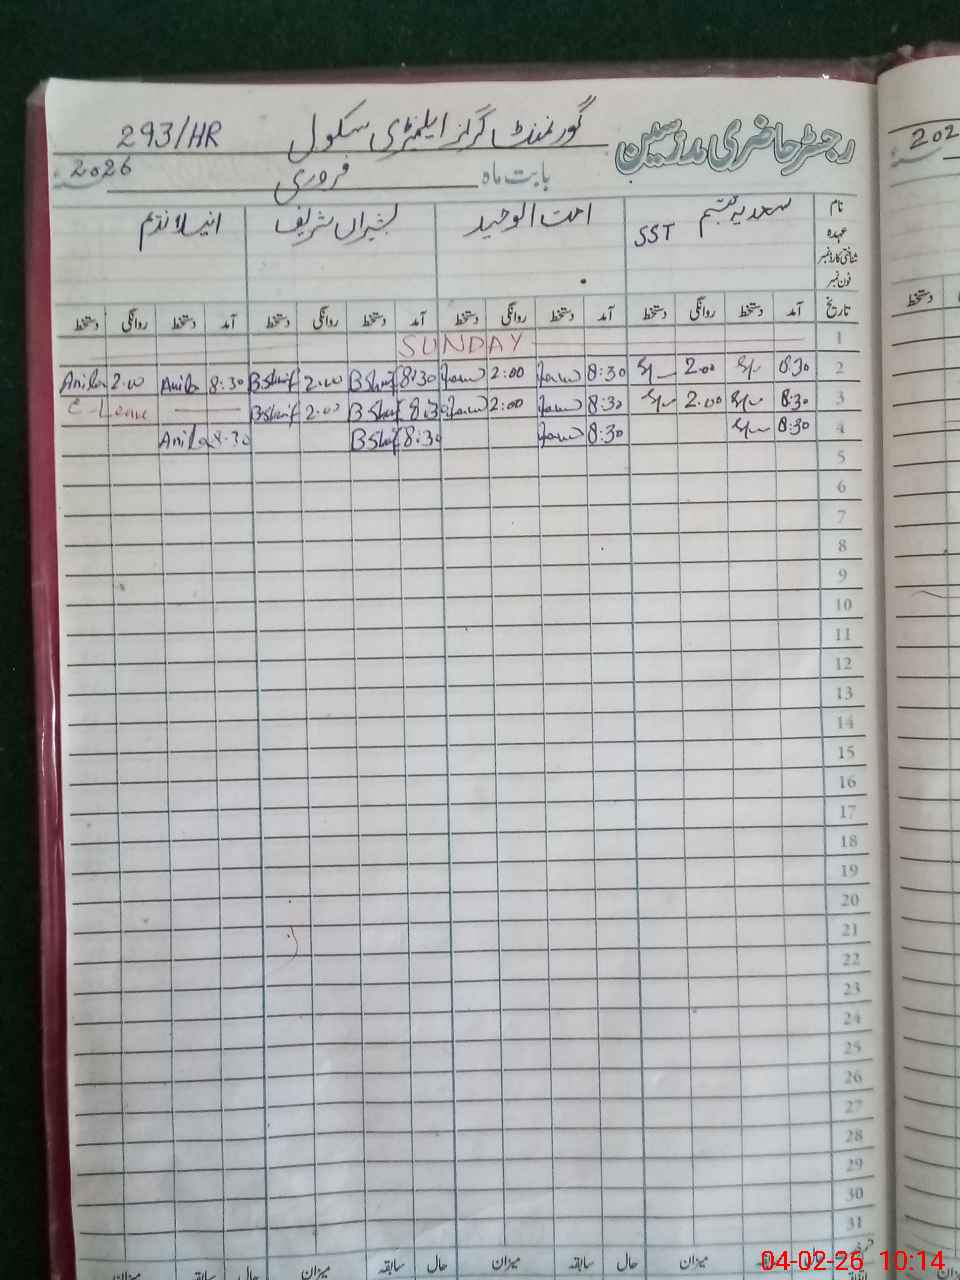 رجسٹر حاضری مدرسین گورنمنٹ گرلز ایلیمنٹری سکول 293/HR
بابت ماہ فروری 2026
نام سعدیہ تبسم امت الوحید بشیراں شریف انیلا ندیم
عہدہ SST
شناختی کارڈ نمبر
فون نمبر
تاریخ آمد دستخط روانگی دستخط آمد دستخط روانگی دستخط آمد دستخط روانگی دستخط آمد دستخط روانگی دستخط
1 SUNDAY
2 8:30 2.00 8:30 2:00 8:30 B Sharif 2.00 B Sharif 8:30 Anila 2.00 Anila
3 8:30 2.00 8:30 2:00 8:30 B Sharif 2.00 B Sharif C-Leave
4 8:30 8:30 8:30 B Sharif 8:30 Anila
5
6
7
8
9
10
11
12
13
14
15
16
17
18
19
20
21
22
23
24
25
26
27
28
29
30
31
حال سابقہ میزان حال سابقہ میزان حال سابقہ میزان حال سابقہ میزان
202
دستخط
04-02-26 10:14